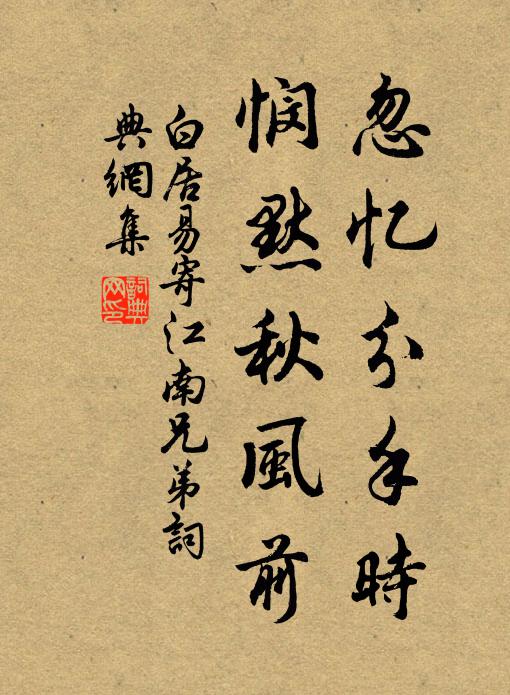 忽忆分手时
悯默秋風前
白居易寄江南兄弟詞
典網集
詞典
网印